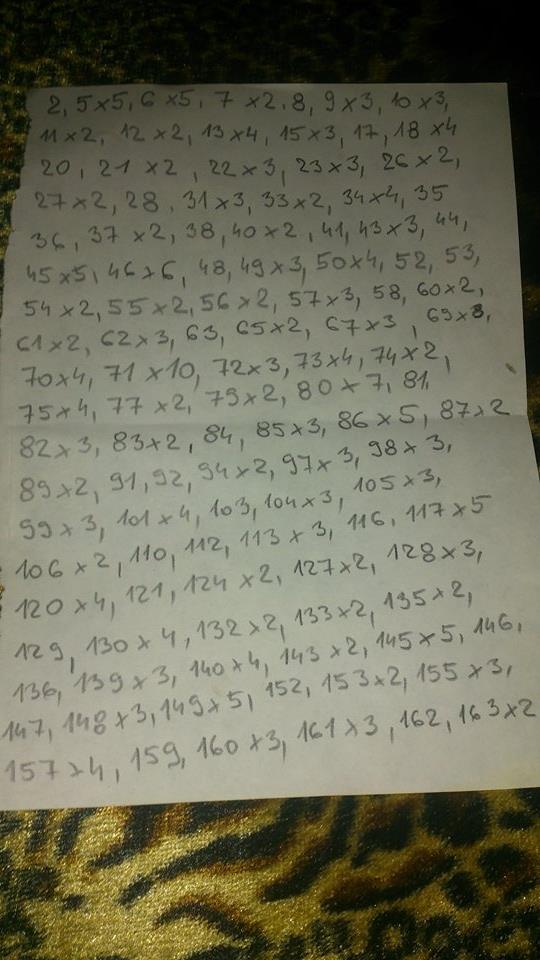 2, 5x5, 6x5, 7x2, 8, 9x3, 10x3,
11x2, 12x2, 13x4, 15x3, 17, 18x4
20, 21x2, 22x3, 23x3, 26x2,
27x2, 28, 31x3, 33x2, 34x4, 35
36, 37x2, 38, 40x2, 41, 43x3, 44,
45x5, 46x6, 48, 49x3, 50x4, 52, 53,
54x2, 55x2, 56x2, 57x3, 58, 60x2,
61x2, 62x3, 63, 65x2, 67x3, 69x3,
70x4, 71x10, 72x3, 73x4, 74x2,
75x4, 77x2, 79x2, 80x7, 81,
82x3, 83x2, 84, 85x3, 86x5, 87x2
89x2, 91, 92, 94x2, 97x3, 98x3,
99x3, 101x4, 103, 104x3, 105x3,
106x2, 110, 112, 113x3, 116, 117x5
120x4, 121, 124x2, 127x2, 128x3,
129, 130x4, 132x2, 133x2, 135x2,
136, 139x3, 140x4, 143x2, 145x5, 146,
147, 148x3, 149x5, 152, 153x2, 155x3,
157x4, 159, 160x3, 161x3, 162, 163x2